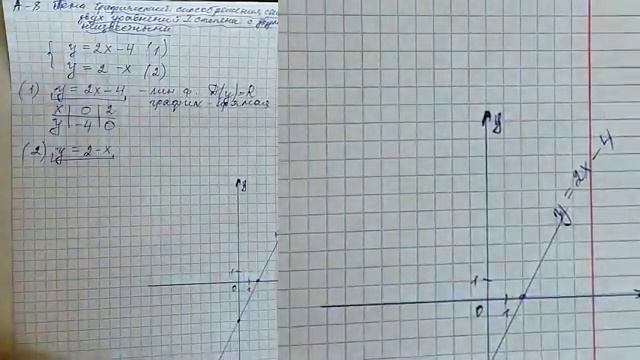 А-8 Тема: Графический способ решения сис
двух уравнений I степени с двумя
неизвестными
y = 2x - 4 (1)
y = 2 - x (2)
(1) y = 2x - 4 - лин. ф. D(y) = R
график - прямая
x | 0 | 2
y | -4 | 0
(2) y = 2 - x
y
1
0 1
y
y = 2x - 4
1
0 1